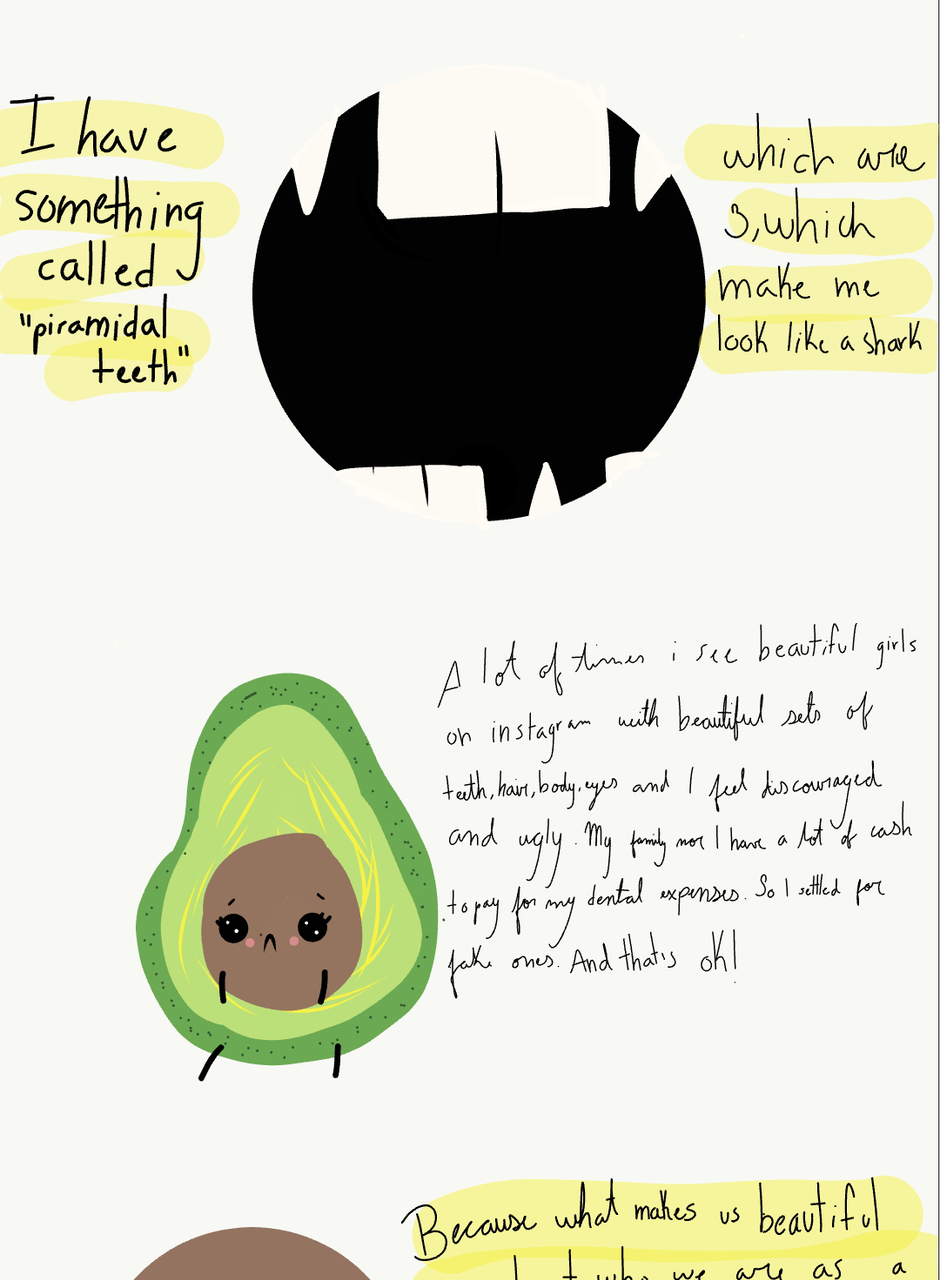 I have
something
called
"piramidal
teeth"
which are
3, which
make me
look like a shark
A lot of times i see beautiful girls
on instagram with beautiful sets of
teeth, hair, body, eyes and I feel discouraged
and ugly. My family nor I have a lot of cash
to pay for my dental expenses. So I settled for
fake ones. And that's ok!
Because what makes us beautiful
who we are as a